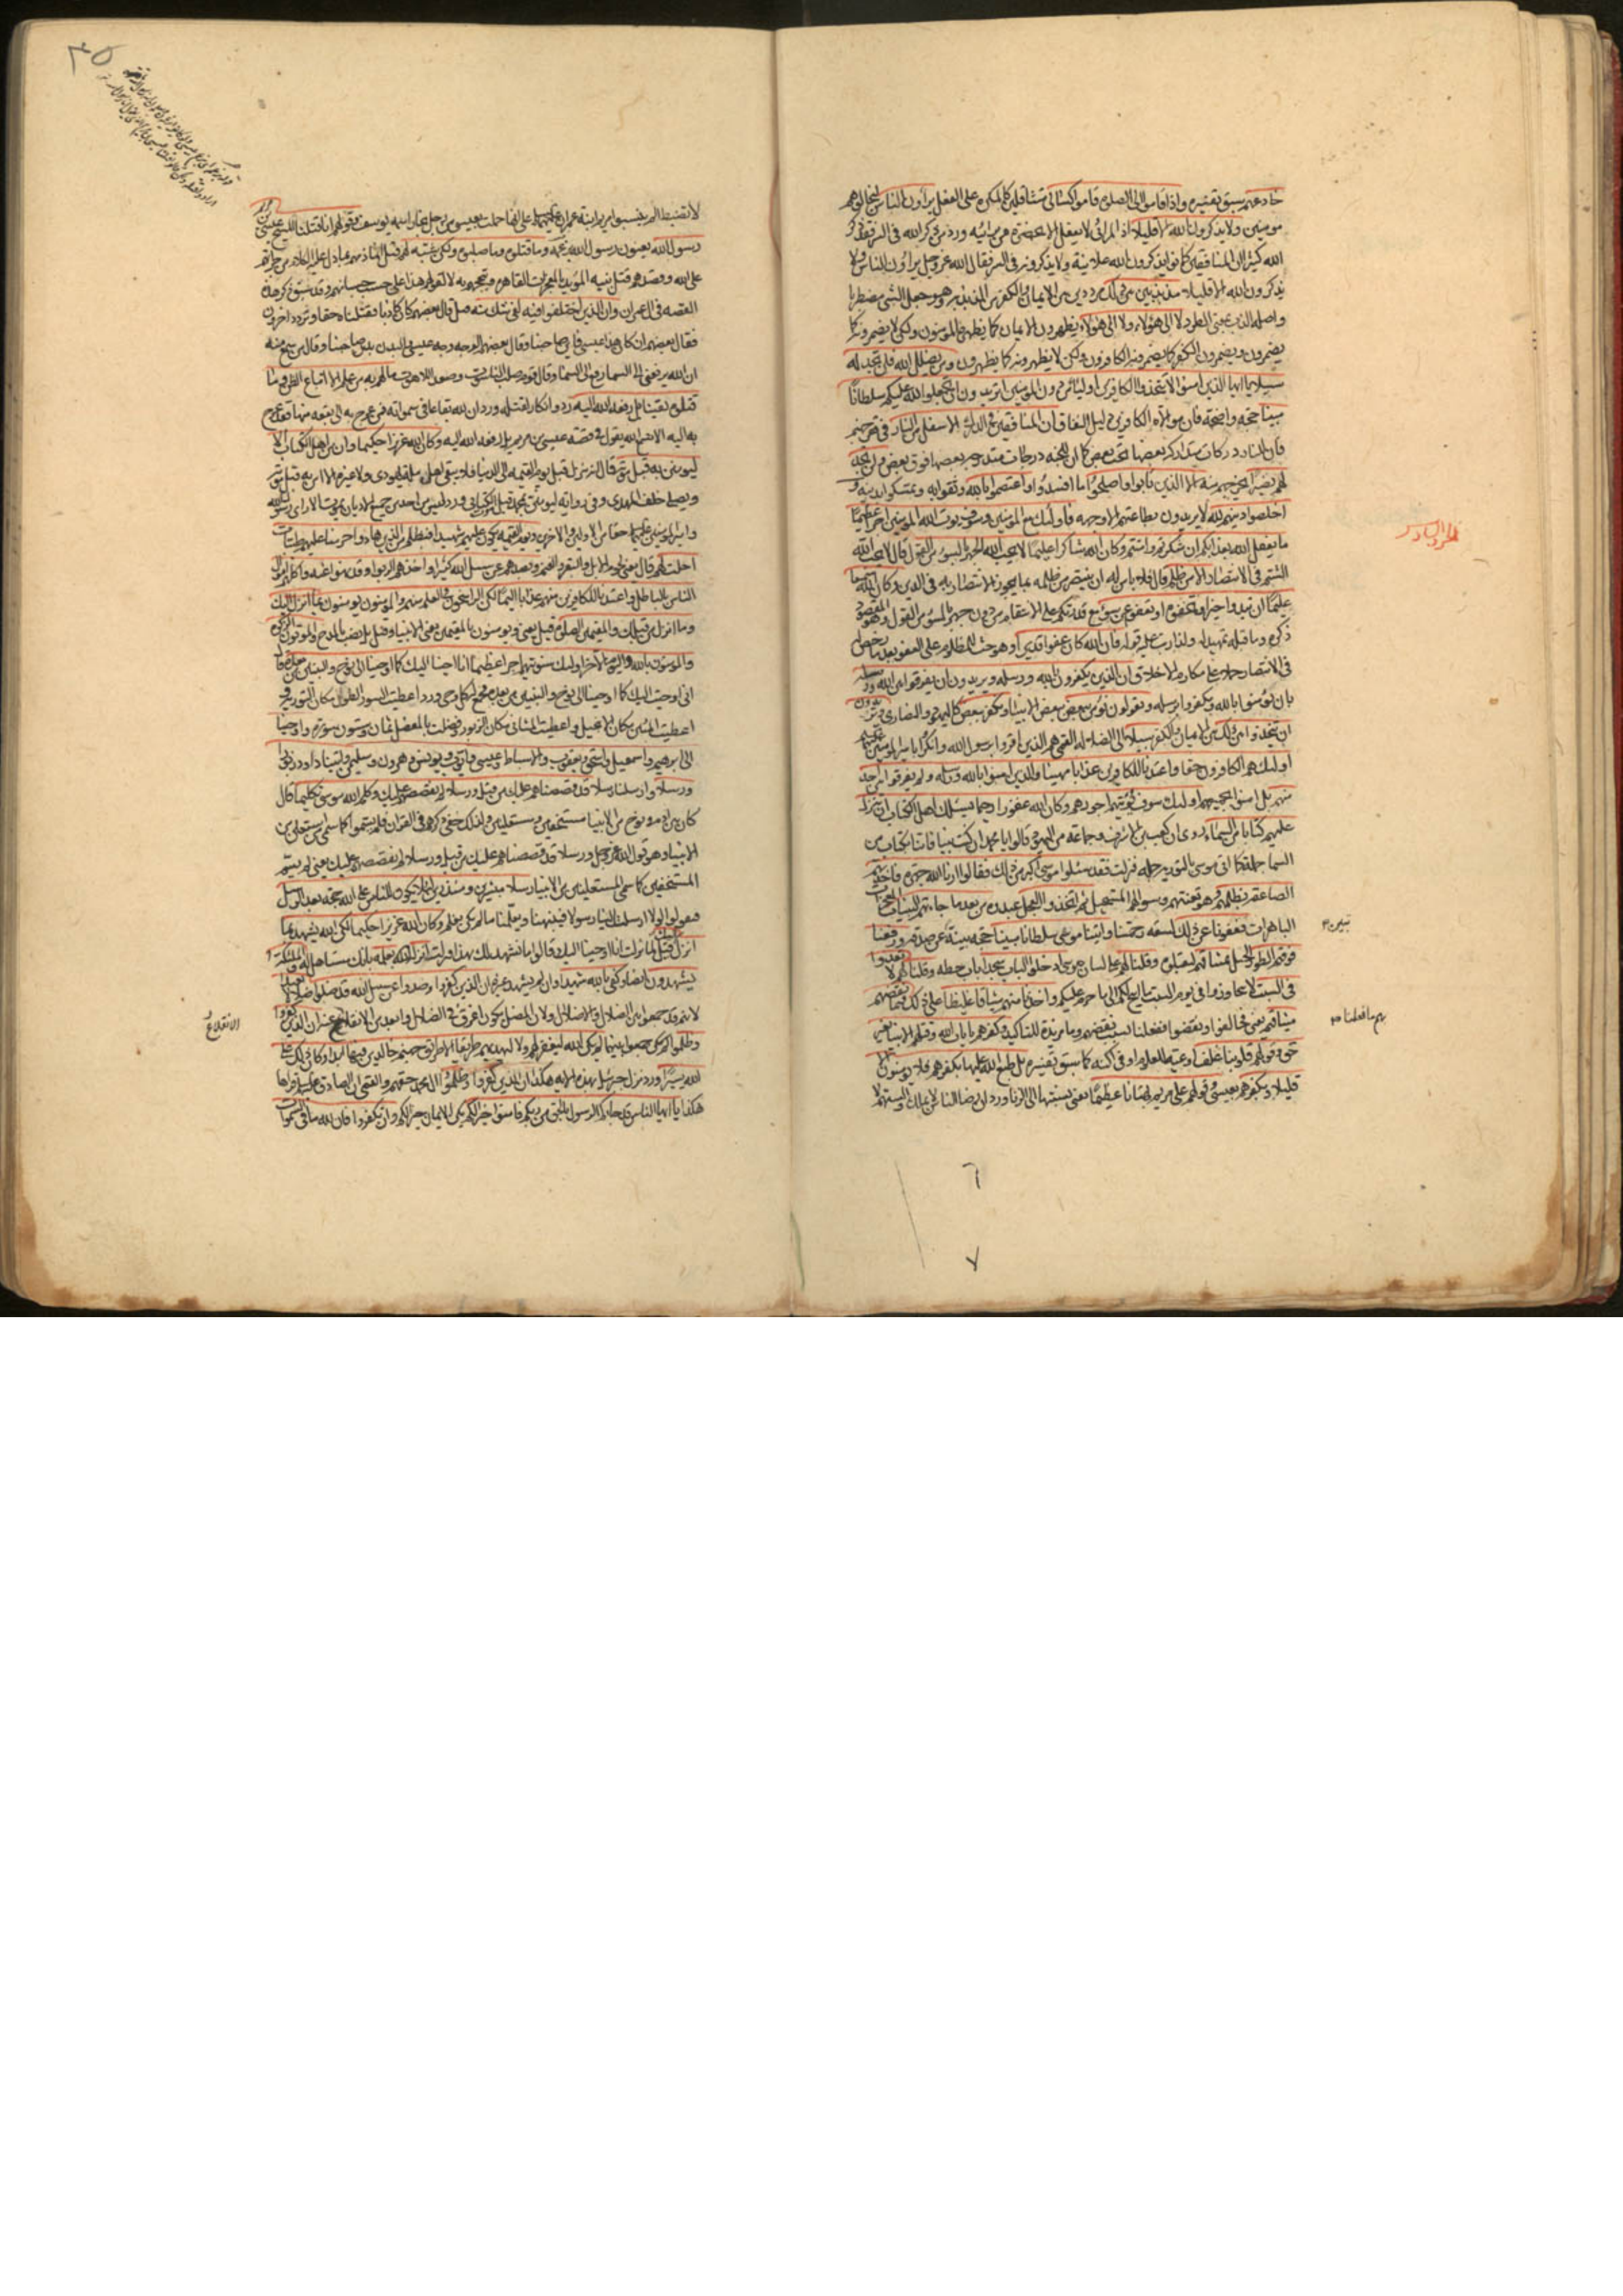 خادعهم سبق تفسيره واذا قاموا الى الصلوة قاموا كسالى متثاقلين كالمكره على الفعل يراؤن الناس ليخالوهم
مؤمنين ولا يذكرون الله الا قليلا اذ المرائي لا يفعل الا بحضرة من يرائيه وورد من ذكر الله في السر فقد ذكر
الله كثيرا ان المنافقين كانوا يذكرون الله علانية ولا يذكرونه في السر فقال الله عز وجل يراؤن الناس ولا
يذكرون الله الا قليلا مذبذبين بين ذلك مرددين بين الايمان والكفر من الذبذبة وهو جعل الشئ مضطربا
واصله الذب بمعنى الطرد لا الى هؤلاء ولا الى هؤلاء يظهرون الايمان كما يظهره المؤمنون ولكن لا يضمرونه كما
يضمرون ويضمرون الكفر كما يضمره الكافرون ولكن لا يظهرونه كما يظهرون ومن يضلل الله فلن تجد له
سبيلا يا ايها الذين امنوا لا تتخذوا الكافرين اولياء من دون المؤمنين اتريدون ان تجعلوا لله عليكم سلطانا
مبينا حجة واضحة فان موالاة الكافرين دليل النفاق ان المنافقين في الدرك الاسفل من النار في قعر جهنم
فان للنار دركات متداركة بعضها تحت بعض كما ان للجنة درجات متدرجة بعضها فوق بعض ولن تجد
لهم نصيرا يخرجهم منه الا الذين تابوا واصلحوا ما افسدوا واعتصموا بالله وثقوا به وتمسكوا بدينه و
اخلصوا دينهم لله لا يريدون بطاعتهم الا وجهه فاولئك مع المؤمنين وسوف يؤت الله المؤمنين اجرا عظيما
ما يفعل الله بعذابكم ان شكرتم وامنتم وكان الله شاكرا عليما لا يحب الله الجهر بالسوء من القول قال لا يحب الله
الشتم في الانتصار الا من ظلم قال فلا باس له ان ينتصر ممن ظلمه بما يجوز الانتصار به في الدين وكان الله سميعا
عليما ان تبدوا خيرا او تخفوه او تعفوا عن سوء مع قدرتكم على الانتقام من دون جهر بالسوء من القول وهو المقصود
ذكره وما قبله تمهيد له ولذا رتب عليه قوله فان الله كان عفوا قديرا وهو حث للمظلوم على العفو بعد ما رخص له
في الانتصار حملا على مكارم الاخلاق ان الذين يكفرون بالله ورسله ويريدون ان يفرقوا بين الله ورسله
بان يؤمنوا بالله ويكفروا برسله ويقولون نؤمن ببعض ونكفر ببعض كاليهود والنصارى ويريدون
ان يتخذوا بين ذلك بين الايمان والكفر سبيلا الى الضلالة القمي هم الذين اقروا برسول الله وانكروا بامير المؤمنين
اولئك هم الكافرون حقا واعتدنا للكافرين عذابا مهينا والذين امنوا بالله ورسله ولم يفرقوا بين احد
منهم بل امنوا بجميعهم اولئك سوف نؤتيهم اجورهم وكان الله غفورا رحيما يسئلك اهل الكتاب ان تنزل
عليهم كتابا من السماء روى ان كعب بن الاشرف وجماعة من اليهود قالوا يا محمد ان كنت نبيا فاتنا بكتاب من
السماء جملة كما اتى موسى بالتورية جملة فنزلت فقد سئلوا موسى اكبر من ذلك فقالوا ارنا الله جهرة فاخذتهم
الصاعقة بظلمهم وهو تعنتهم وسؤالهم المستحيل ثم اتخذوا العجل عبدوه من بعد ما جاءتهم البينات المعجزات
الباهرات فعفونا عن ذلك لسعة رحمتنا واتينا موسى سلطانا مبينا حجة بينة عن صدقه ورفعنا
فوقهم الطور الجبل بميثاقهم ليقبلوه وقلنا لهم على لسان موسى ادخلوا الباب سجدا باب حطة وقلنا لهم لا تعدوا
في السبت لا تجاوزوا في يوم السبت ما ابيح لكم الى ما حرم عليكم واخذنا منهم ميثاقا غليظا على ذلك فبما نقضهم
ميثاقهم يعني فخالفوا ونقضوا ففعلنا بسبب نقضهم وما مزيدة للتاكيد وكفرهم بايات الله وقتلهم الانبياء بغير
حق وقولهم قلوبنا غلف اوعية للعلوم او في اكنة كما سبق تفسيره بل طبع الله عليها بكفرهم فلا يؤمنون الا
قليلا وبكفرهم بعيسى وقولهم على مريم بهتانا عظيما يعني نسبتها الى الزنا ورد ان رضا الناس لا يملك والسنتهم لا
تبين
بهم ما فعلنا
٦
٧
٣٥
لا تضبط الم ينسبوا مريم ابنة عمران الى انها حملت بعيسى من رجل نجار اسمه يوسف وقولهم انا قتلنا المسيح عيسى بن مريم
رسول الله يعنون رسول الله بزعمه وما قتلوه وما صلبوه ولكن شبه لهم قيل انما ذمهم بما دل عليه الكلام من جراتهم
على الله وقصدهم قتل نبيه المؤيد بالمعجزات القاهرة وتبجحهم به لا لقولهم هذا على حسب حسبانهم وقد سبق ذكر هذه
القصة في ال عمران وان الذين اختلفوا فيه لفي شك منه قيل قال بعضهم كان كاذبا فقتلناه حقا وتردد اخرون
فقال بعضهم ان كان هذا عيسى فاين صاحبنا وقال بعضهم الوجه وجه عيسى والبدن بدن صاحبنا وقال من سمع منه
ان الله يرفعني الى السماء رفع الى السماء وقال قوم صلب الناسوت وصعد اللاهوت ما لهم به من علم الا اتباع الظن وما
قتلوه يقينا بل رفعه الله اليه رد وانكار لقتله ورد ان لله بقاعا في سمواته فمن عرج به الى بقعة منها فقد عرج
به اليه الا تسمع الله يقول في قصة عيسى بن مريم بل رفعه الله اليه وكان الله عزيزا حكيما وان من اهل الكتاب الا
ليؤمنن به قبل موته قال ينزل قبل يوم القيمة الى الدنيا فلا يبقى اهل ملة يهودي ولا غيره الا امن به قبل موته
ويصلي خلف المهدي وفي رواية ليؤمنن بمحمد قبل موت الكتابي وورد ليس من احد من جميع الاديان يموت الا راى رسول الله
وامير المؤمنين حقا من الاولين والاخرين ويوم القيمة يكون عليهم شهيدا فبظلم من الذين هادوا حرمنا عليهم طيبات
احلت لهم قال يعني لحوم الابل والبقر والغنم وبصدهم عن سبيل الله كثيرا واخذهم الربوا وقد نهوا عنه واكلهم اموال
الناس بالباطل واعتدنا للكافرين منهم عذابا اليما لكن الراسخون في العلم منهم والمؤمنون يؤمنون بما انزل اليك
وما انزل من قبلك والمقيمين الصلوة قيل يعني ويؤمنون بالمقيمين يعني الانبياء وقيل بل نصب بالمدح والمؤتون الزكوة
والمؤمنون بالله واليوم الاخر اولئك سنؤتيهم اجرا عظيما انا اوحينا اليك كما اوحينا الى نوح والنبيين من بعده قال
اني اوحيت اليك كما اوحيت الى نوح والنبيين من بعده فجمع له كل وحي وورد اعطيت السور الطول مكان التورية و
اعطيت المئين مكان الانجيل واعطيت المثاني مكان الزبور وفضلت بالمفصل ثمان وستون سورة واوحينا
الى ابرهيم واسمعيل واسحق ويعقوب والاسباط وعيسى وايوب ويونس وهرون وسليمن واتينا داود زبورا
ورسلا وارسلنا رسلا قد قصصناهم عليك من قبل ورسلا لم نقصصهم عليك وكلم الله موسى تكليما قال
كان بين ادم ونوح من الانبياء مستخفين ومستعلنين ولذلك خفى ذكرهم في القران فلم يسموا كما سمى من استعلن من
الانبياء وهو قول الله عز وجل ورسلا قد قصصناهم عليك من قبل ورسلا لم نقصصهم عليك يعني لم يسم
المستخفين كما سمى المستعلنين من الانبياء رسلا مبشرين ومنذرين لئلا يكون للناس على الله حجة بعد الرسل
فيقولوا لولا ارسلت الينا رسولا فينبهنا ويعلمنا ما لم نكن نعلم وكان الله عزيزا حكيما لكن الله يشهد بما
انزل اليك قيل لما نزلت انا اوحينا اليك قالوا ما نشهد لك بهذا فنزلت انزله بعلمه بانك مستاهل له والملئكة
يشهدون ايضا وكفى بالله شهيدا وان لم يشهد غيره ان الذين كفروا وصدوا عن سبيل الله قد ضلوا ضلالا بعيدا
لانهم قد جمعوا بين الضلال والاضلال ولان المضل يكون اغرق في الضلال وابعد من الانقلاع عنه ان الذين كفروا
وظلموا كمن جمعوا بينهما لم يكن الله ليغفر لهم ولا ليهديهم طريقا الا طريق جهنم خالدين فيها ابدا وكان ذلك على
الله يسيرا ورد نزل جبرئيل بهذه الاية هكذا ان الذين كفروا وظلموا ال محمد حقهم والقمي ان الصادق قراها
هكذا يا ايها الناس قد جاءكم الرسول بالحق من ربكم فامنوا خيرا لكم يكن الايمان خيرا لكم وان تكفروا فان لله ما في السموات
الانقلاع